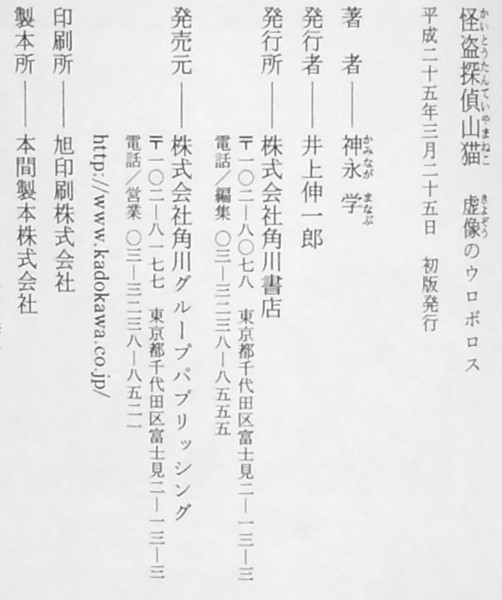 怪盗探偵山猫 虚像のウロボロス
かいとうたんていやまねこ きょぞう
平成二十五年三月二十五日 初版発行
著 者――神永 学
かみなが まなぶ
発行者――井上伸一郎
発行所――株式会社角川書店
〒一〇二―八〇七八 東京都千代田区富士見二―一三―三
電話／編集 〇三―三二三八―八五五五
発売元――株式会社角川グループパブリッシング
〒一〇二―八一七七 東京都千代田区富士見二―一三―三
電話／営業 〇三―三二三八―八五二一
http://www.kadokawa.co.jp/
印刷所――旭印刷株式会社
製本所――本間製本株式会社